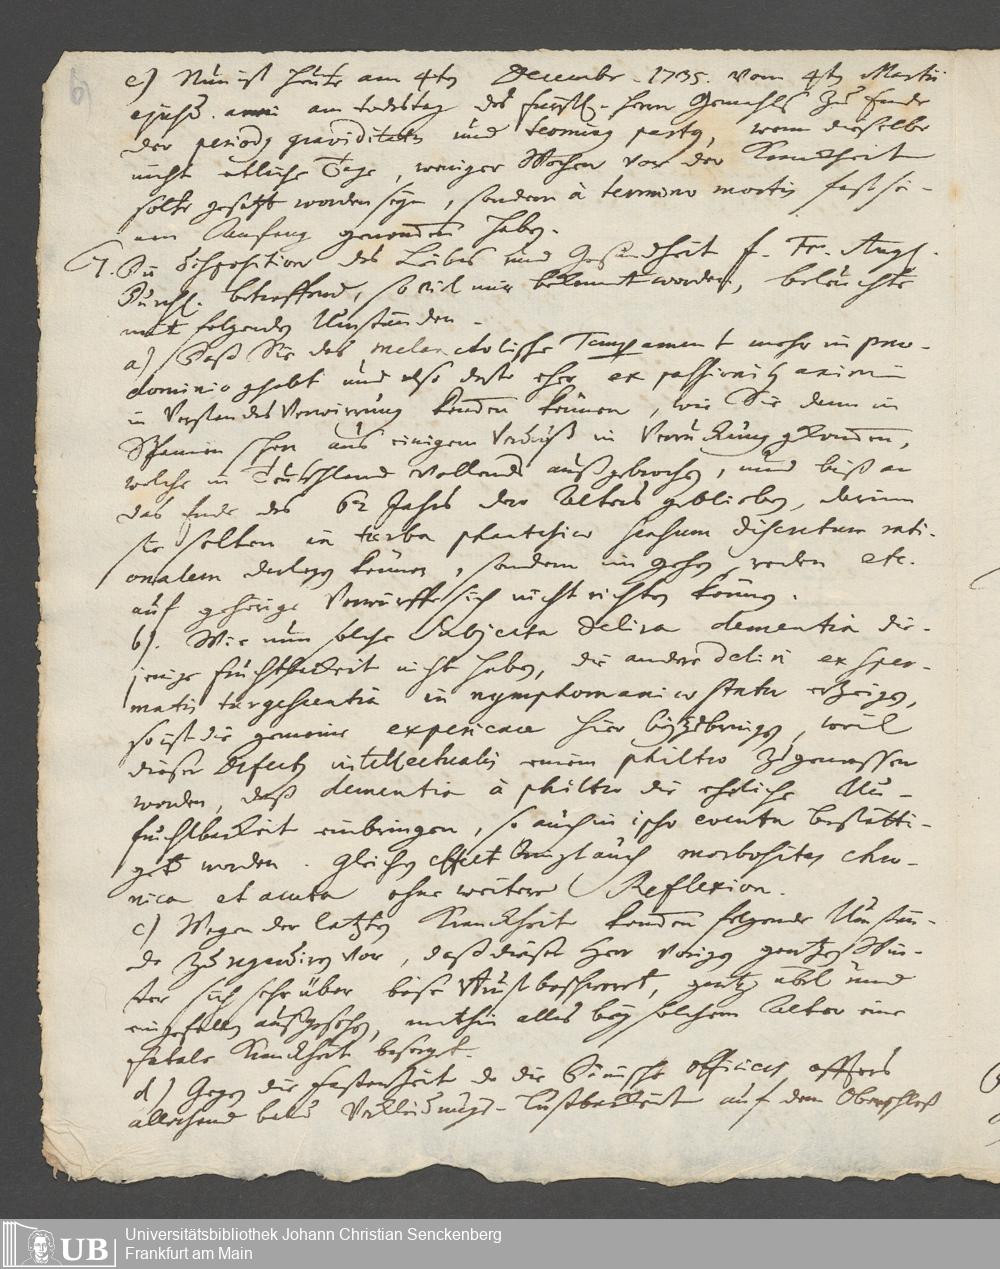 e) Nun ist heute am 4ten December. 1735. vom 4ten Martii
ejusd. anni am todestag des fürstl. Herrn Gemahls zu Ende
der periodus graviditatis und terminus partus, wenn dieselbe
nicht etliche Tage, weniger Wochen vor der Kranckheit
solte gesetzt worden seyn, sondern à termino mortis fast sei-
nen Anfang genommen haben.
7. Die disposition des Leibes und Gesundheit f. Fr. Aug.
Durchl. betreffend, so viel mir bekannt worden, beleuchte
mit folgenden Umständen.
a) Daß Sie das melancholische Temperament mehr in prae-
dominio gehabt und also desto eher ex passionibus animi
in Verstandes Verwirrung kommen können, wie Sie dann in
Spanien schon aus einigem Verdruß in Verrückung gekommen,
welche in Teutschland vollends ausgebrochen, und biß an
das Ende des 62 Jahrs des Alters geblieben, darinn
sie selten in turba phantasiae sensum discretum rati-
onalem darlegen können, sondern im gehen, reden etc.
auf gehörige Vorwürffe sich nicht richten können.
b). Wie nun solche Subjecta delira dementia die-
jenige fruchtbarkeit nicht haben, die andere deliri ex sper-
matis turgescentia in nymphomaniaco statu erzeigen,
so ist die gemeine experience hier beyzubringen, weil
dieser defectus intellectualis einem philtro zugemessen
worden, daß dementia à philtro die eheliche Un-
fruchtbarkeit einbringen, so auch in ipso eventu bestätti-
get worden. Gleichen effect bringt auch morbositas chro-
nica et acuta ohne weitere Reflexion.
c) Wegen der letzten Kranckheit kommen folgende Umstän-
de zu regardiren vor, daß dieser Herr vorigen gantzen Win-
ter sich sehr über böse Brust beschwert, gantz übel und
eingefallen ausgesehen, mithin alles bey solchem Alter eine
fatale Kranckheit besorgt.
d) Gegen die fastenzeit da die Dänische officiers offters
allerhand Verkleidungs-Lustbarkeiten auf dem Oberschloß